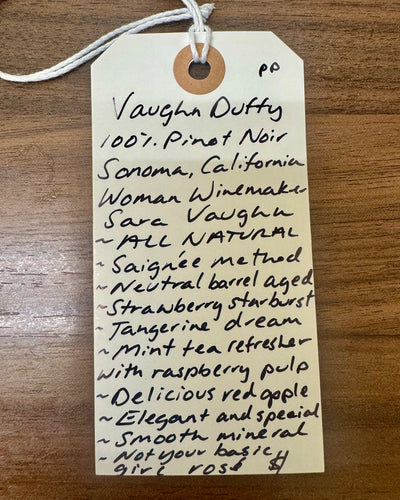 PD
Vaughn Duffy
100% Pinot Noir
Sonoma, California
Woman Winemaker
Sara Vaughn
~ ALL NATURAL
~ Saignée method
~ Neutral barrel aged
~ Strawberry starburst
~ Tangerine dream
~ Mint tea refresher
with raspberry pulp
~ Delicious red apple
~ Elegant and special
~ Smooth mineral
~ Not your basic
girl rosé